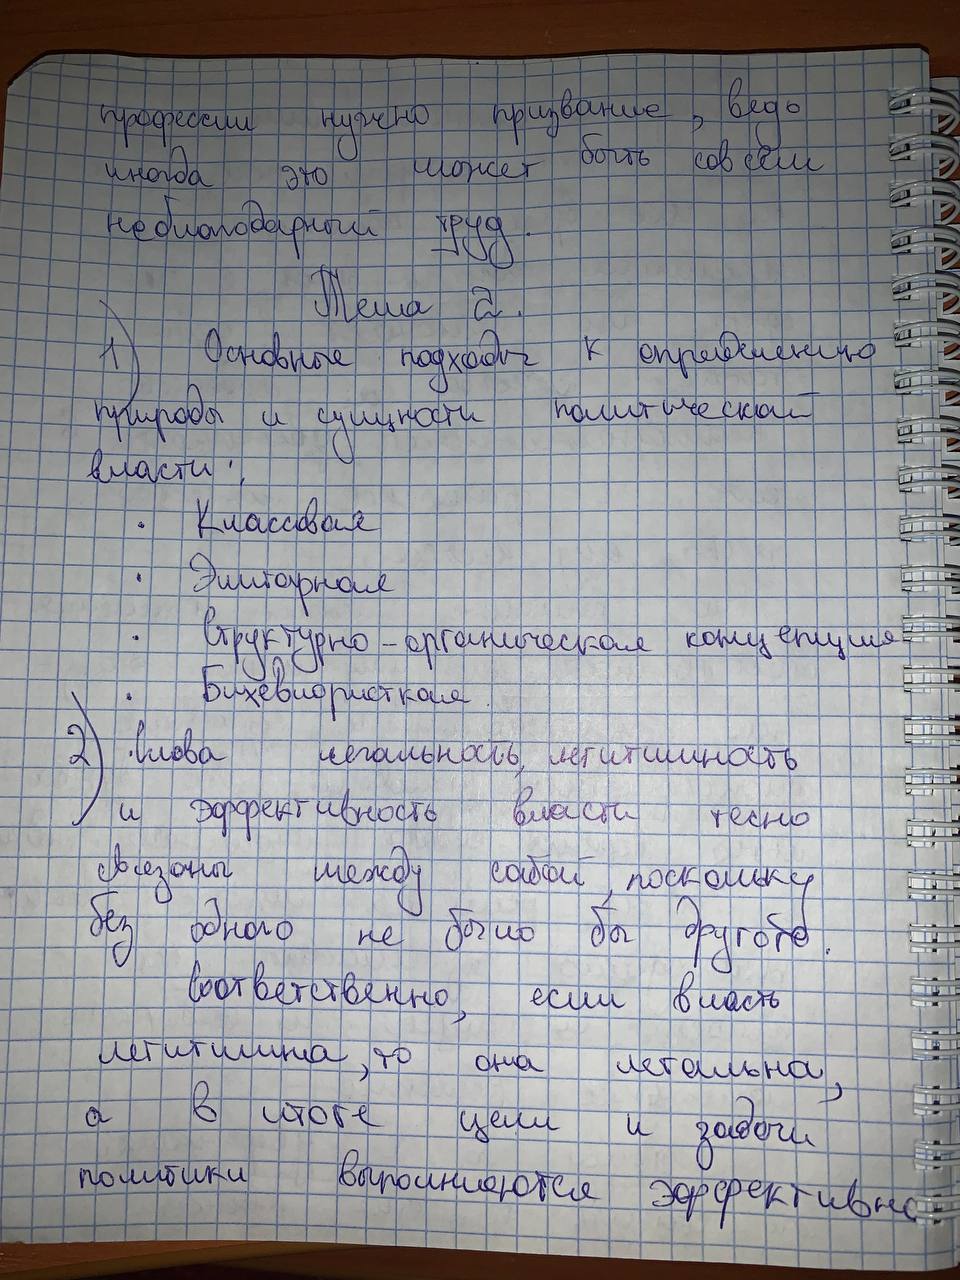 профессии нужно призвание, ведь
иногда это может быть совсем
неблагодарный труд.
Тема 2.
1) Основные подходы к определению
природы и сущности политической
власти:
· Классовая
· Элитарная
· Структурно-органическая концепция
· Бихевиористкая
2) Слова легальность, легитимность
и эффективность власти тесно
связаны между собой, поскольку
без одного не было бы другого.
Соответственно, если власть
легитимна, то она легальна,
а в итоге цели и задачи
политики выполняются эффективно